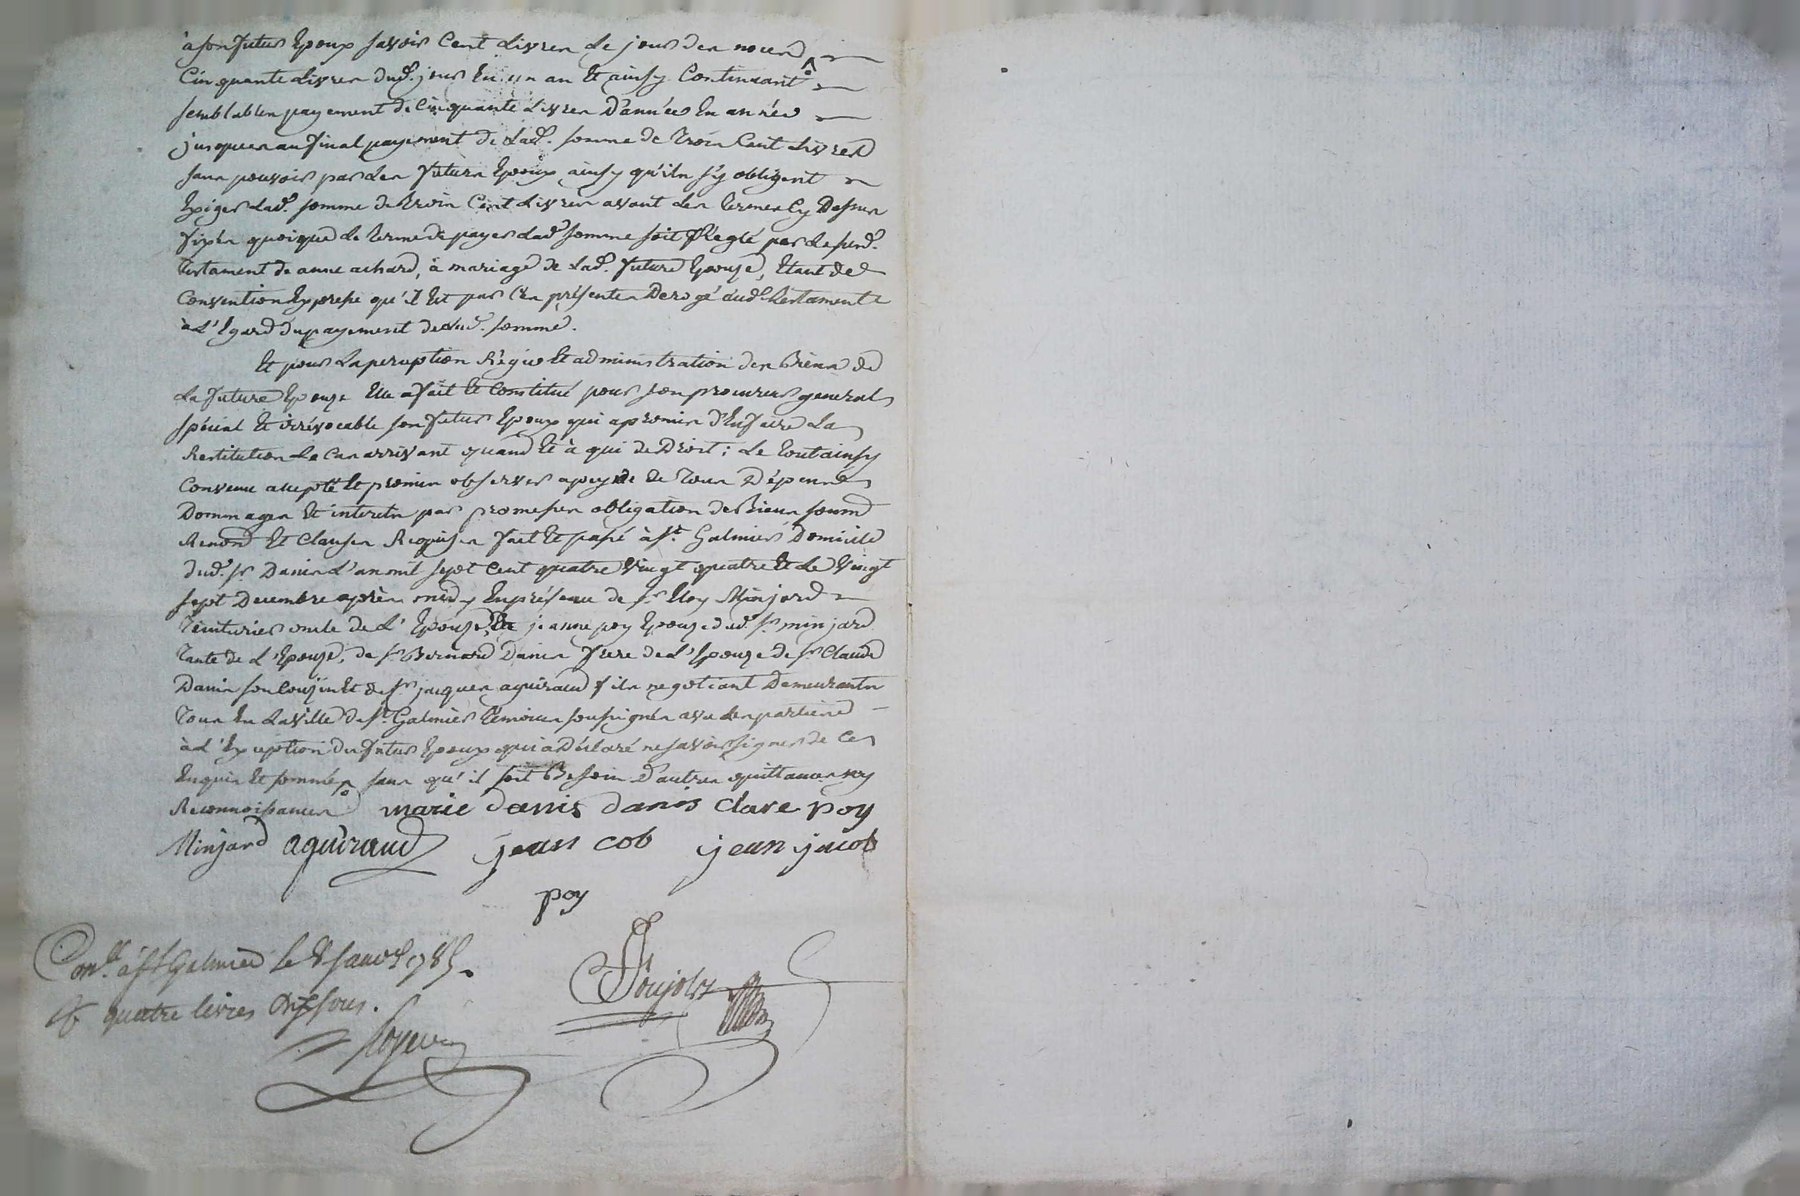 à son futur Epoux savoir Cent Livres Le jour des noces
Cinquante Livres dud. jour En un an Et ainsy Continuant
semblables payement de Cinquante Livres D'année En année
jusques au final payement de Lad. somme de Trois Cent Livres
sans pouvoir par Les futurs Epoux ainsy qu'ils s'y obligent
Exiger Lad. somme de trois Cent Livres avant Les termes Cy Dessus
fixés quoique Le terme de payer Lad. somme soit Réglé par Le susd.
Testament de anne achard, à mariage de Lad. future Epouse, Etant de
Convention Expresse qu'il Est par Ces présentes Derogé aud. testament
à L'Egard du payement de Lad. somme.
Et pour La perception Régie Et administration des Biens de
La future Epouze Elle a fait Et Constitué pour son procureur general
spécial Et irrévocable son futur Epoux qui a promis d'En faire La
Restitution Le Cas arrivant quand Et à qui de Droit; Le tout ainsy
Convenu accepté Et promis observer a peyne de Tous Dépens
Dommages Et interets par promesses obligation de Biens soumd
Renond Et Clauses Requises fait Et passé à St. Galmier Domicile
dud. sr. Danis L'an mil sept Cent quatre Vingt quatre Et Le Vingt
sept Decembre après midy En présence de sr. Eloy Minjard
Teinturier oncle de L'Epouze, jeanne poy Epouze dud. sr. minjard
Tante de L'Epouze, de sr. Bernard Danis frere de L'Epouze de sr. Claude
Danis son Cousin Et de sr. jacques aguiraud fils negotiant Demeurants
Tous En La Ville de St. Galmier témoins soussignés avec Les parties
à L'Exception du futur Epoux qui a Déclaré ne savoir signer de Ce
Enquis Et sommés sans qu'il soit Besoin D'autres quittances ny
Reconnoissances marie danis danis clare poy
Minjard aguiraud jean cob jean jacob
poy
Conlé. à St Galmier le 8 janvr. 1785.
R quatre livres dix sous.
Poujolz